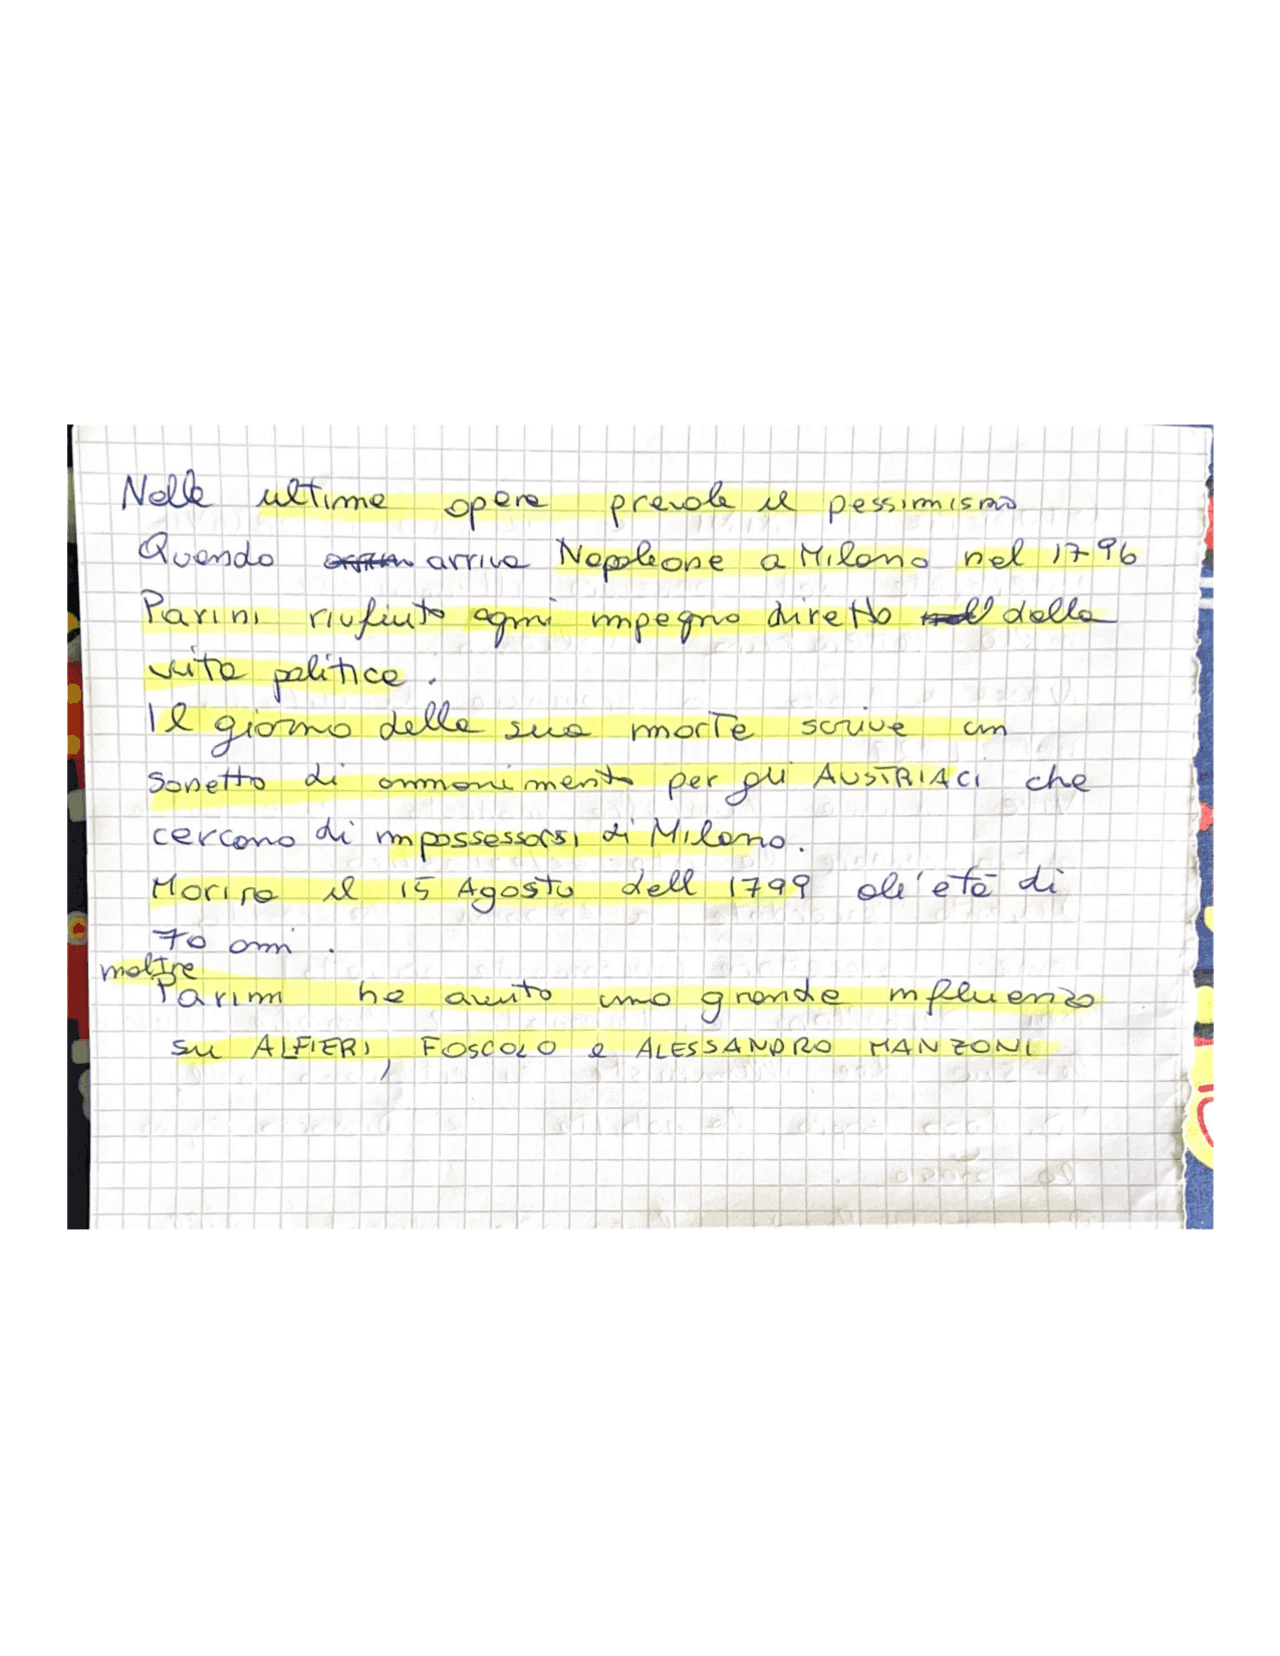 Nelle ultime opere prevale il pessimismo
Quando arriva Napoleone a Milano nel 1796
Parini rifiuto ogni impegno diretto della
vita politica.
Il giorno della sua morte scrive un
sonetto di ammonimento per gli AUSTRIACI che
cercano di impossessarsi di Milano.
Morira il 15 Agosto dell 1799 all'età di
70 anni.
inoltre
Parini ha avuto una grande influenza
su ALFIERI, FOSCOLO e ALESSANDRO MANZONI